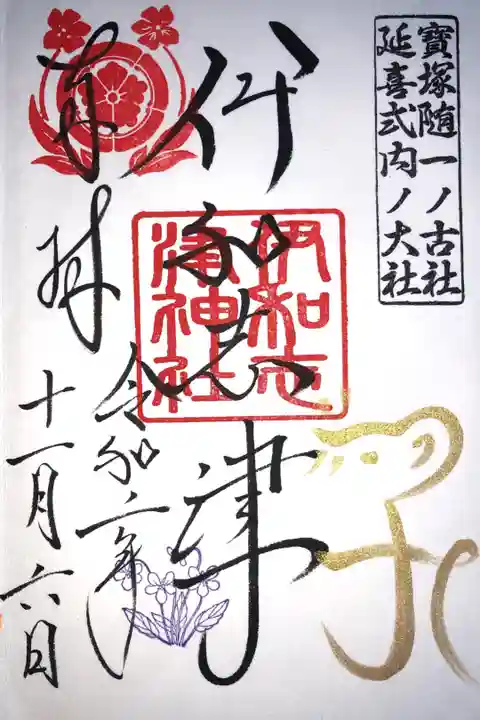 寶塚随一ノ古社
延喜式内ノ大社
子
伊和志津
伊和志
津神社
奉拝
令和二年
十一月六日